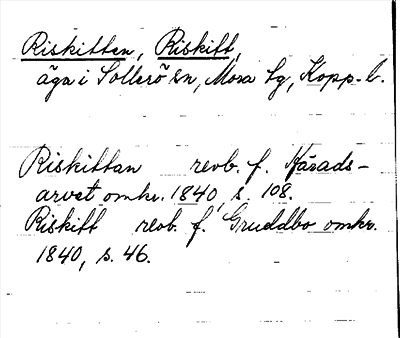 Riskittan, Riskitt,
äga i Sollerö sn, Mora tg, Kopp. l.
Riskittan revb. f. Häradsarvet
arvet omkr. 1840, s. 108.
Riskitt revb. f. Gruddbo omkr.
1840, s. 46.